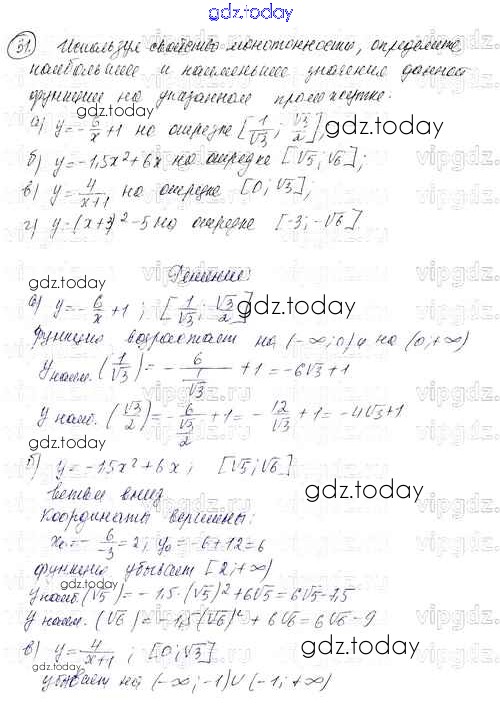 gdz.today
31. Используя свойство монотонности, определите
наибольшее и наименьшее значения данной
функции на указанном промежутке.
а) y = -6/x + 1 на отрезке [1/√3; √3/2];
gdz.today
б) y = -1,5x² + 6x на отрезке [√5; √6];
в) y = 4/(x+1) на отрезке [0; √3];
г) y = (x+3)² - 5 на отрезке [-3; -√6].
Решение:
gdz.today
а) y = -6/x + 1; [1/√3; √3/2]
gdz.today
Функция возрастает на (-∞; 0) и на (0; +∞)
y наим. (1/√3) = -6/(1/√3) + 1 = -6√3 + 1
y наиб. (√3/2) = -6/(√3/2) + 1 = -12/√3 + 1 = -4√3 + 1
gdz.today
б) y = -1,5x² + 6x; [√5; √6]
ветви вниз
gdz.today
координаты вершины:
x₀ = -6/-3 = 2; y₀ = -6 + 12 = 6
функция убывает [2; +∞)
gdz.today
y наиб. (√5) = -1,5·(√5)² + 6√5 = 6√5 - 7,5
y наим. (√6) = -1,5(√6)² + 6√6 = 6√6 - 9
gdz.today
в) y = 4/(x+1); [0; √3]
убывает на (-∞; -1) ∪ (-1; +∞)
gdz.today